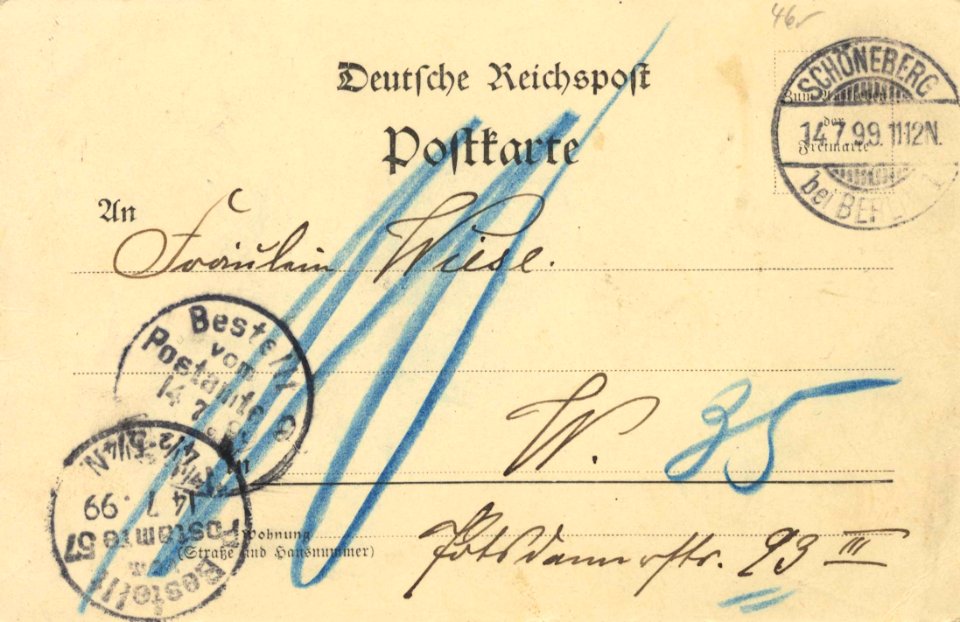 46
Deutsche Reichspost
Postkarte
SCHÖNEBERG
14.7.99. 11-12N.
bei BERLIN
der
Freimarke
An
Fräulein Wiese.
Bestellt
vom
Postamte
14 7
W. 35
in
Wohnung
(Straße und Hausnummer)
Potsdamerstr. 93 III
Bestellt
Postamte 57
14 7 .99